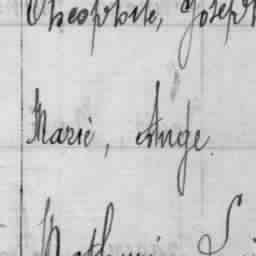 Théophile, Joseph
Marie, Ange.
Mathurin